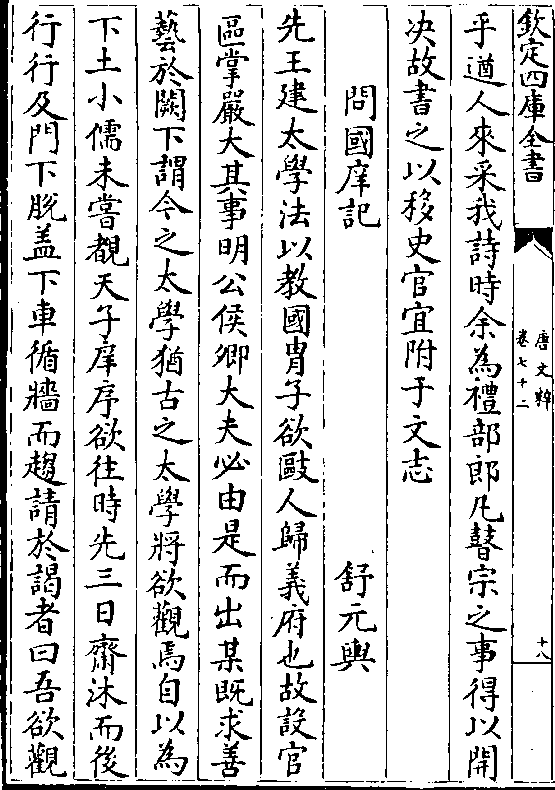 欽定四庫全書
唐文粹
卷七十二
十八
乎遒人來采我詩時余為禮部郎凡瞽宗之事得以開
决故書之以移史官宜附于文志
問國庠記
舒元輿
先王建太學法以教國胄子欲敺人歸義府也故設官
區掌嚴大其事明公侯卿大夫必由是而出某既求善
藝於闕下謂今之太學猶古之太學將欲觀焉自以為
下土小儒未嘗覩天子庠序欲往時先三日齋沐而後
行行及門下脫盖下車循牆而趨請於謁者曰吾欲觀